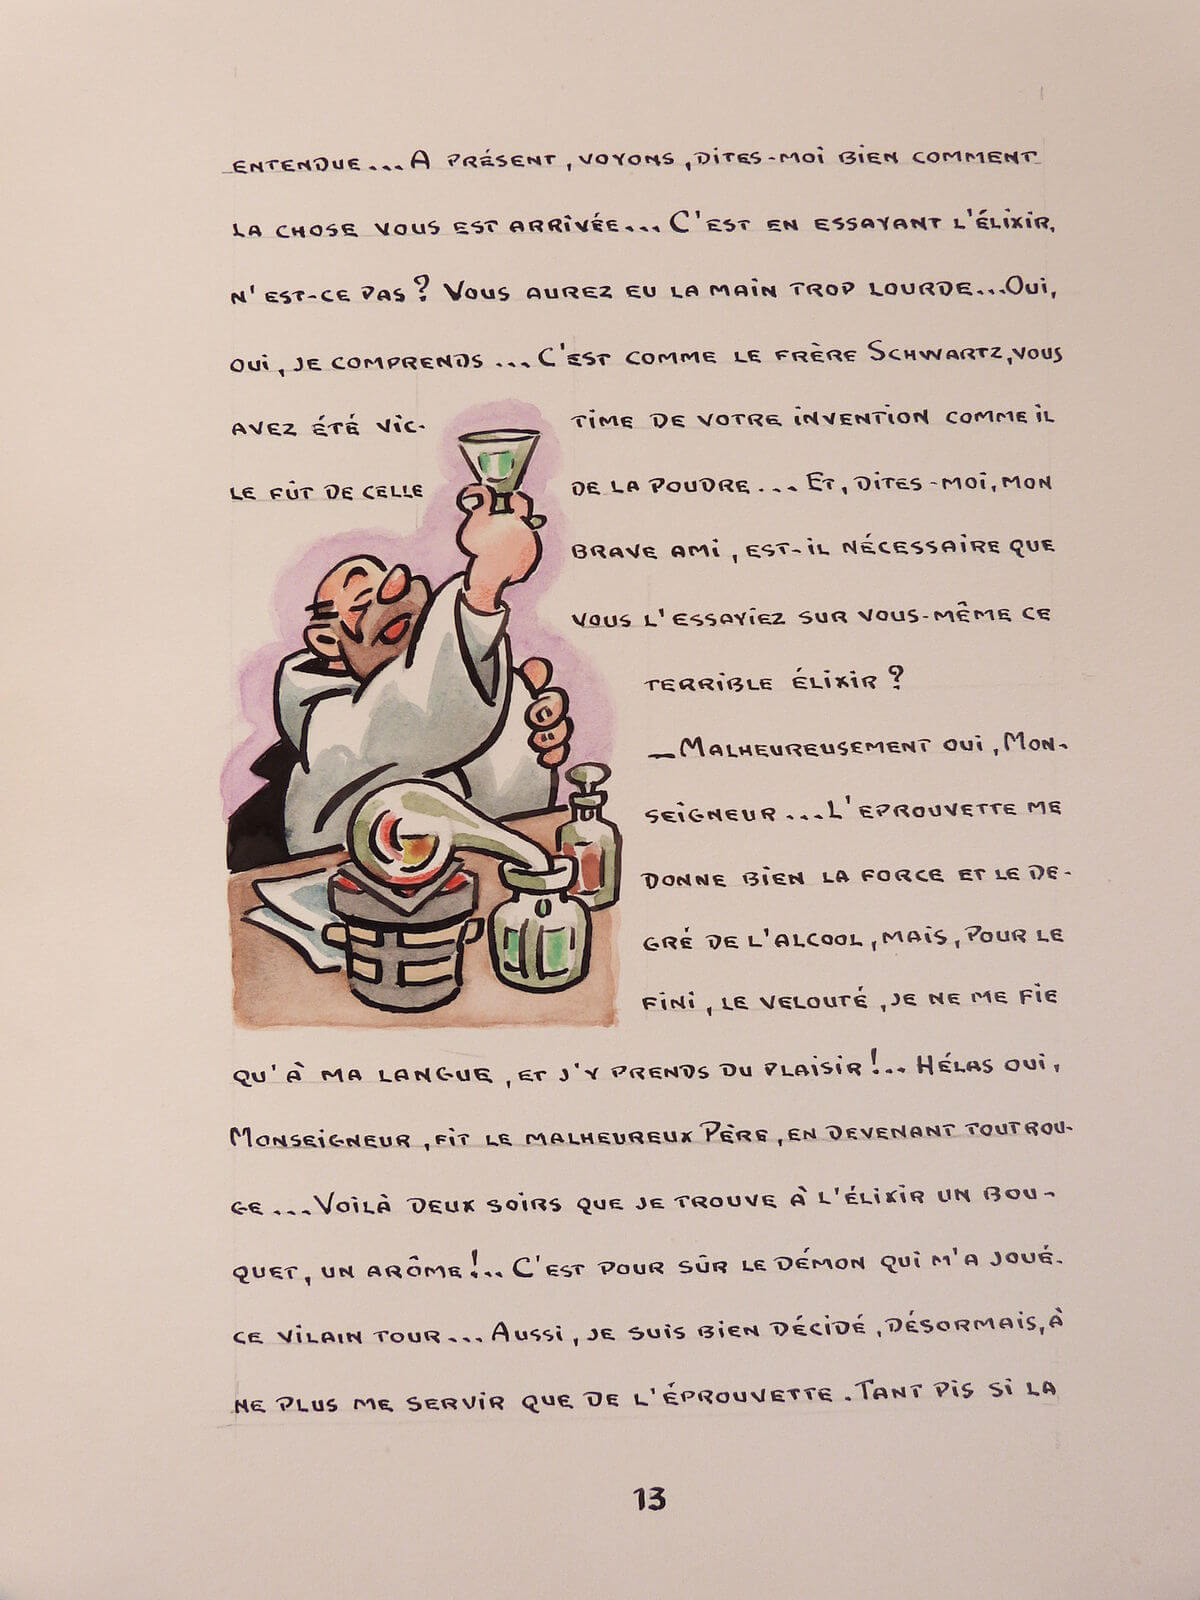 ENTENDUE... A PRÉSENT, VOYONS, DITES-MOI BIEN COMMENT
LA CHOSE VOUS EST ARRIVÉE... C'EST EN ESSAYANT L'ÉLIXIR,
N'EST-CE PAS? VOUS AUREZ EU LA MAIN TROP LOURDE... OUI,
OUI, JE COMPRENDS... C'EST COMME LE FRÈRE SCHWARTZ, VOUS
AVEZ ÉTÉ VIC- TIME DE VOTRE INVENTION COMME IL
LE FÛT DE CELLE DE LA POUDRE... ET, DITES-MOI, MON
BRAVE AMI, EST-IL NÉCESSAIRE QUE
VOUS L'ESSAYIEZ SUR VOUS-MÊME CE
TERRIBLE ÉLIXIR?
— MALHEUREUSEMENT OUI, MON-
SEIGNEUR... L'EPROUVETTE ME
DONNE BIEN LA FORCE ET LE DE-
GRÉ DE L'ALCOOL, MAIS, POUR LE
FINI, LE VELOUTÉ, JE NE ME FIE
QU'À MA LANGUE, ET J'Y PRENDS DU PLAISIR!... HÉLAS OUI,
MONSEIGNEUR, FIT LE MALHEUREUX PÈRE, EN DEVENANT TOUT ROU-
GE... VOILÀ DEUX SOIRS QUE JE TROUVE À L'ÉLIXIR UN BOU-
QUET, UN ARÔME!... C'EST POUR SÛR LE DÉMON QUI M'A JOUÉ.
CE VILAIN TOUR... AUSSI, JE SUIS BIEN DÉCIDÉ, DÉSORMAIS, À
NE PLUS ME SERVIR QUE DE L'ÉPROUVETTE. TANT PIS SI LA
13